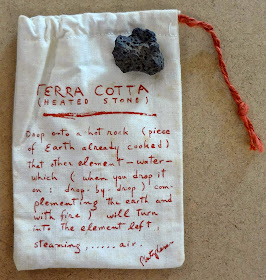 TERRA COTTA
(HEATED STONE)
Drop onto a hot rock (piece
of Earth already cooked)
that other element — water —
which (when you drop it
on: drop-by-drop) com-
plementing the earth and
with fire) will turn
into the element left,
steaming,...... air.